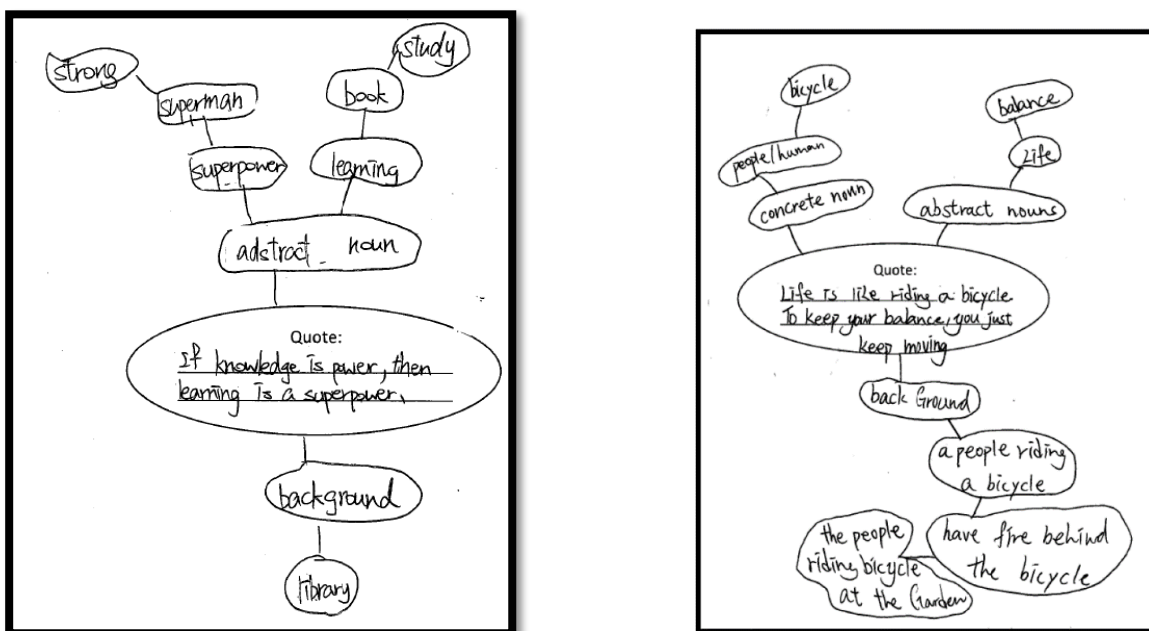 strong
superman
superpower
study
book
learning
adstract noun
Quote:
If knowledge is power, then
learning is a superpower.
background
library
bicycle
people/human
concrete noun
balance
Life
abstract nouns
Quote:
Life is like riding a bicycle
To keep your balance, you just
keep moving
back Ground
a people riding
a bicycle
have fire behind
the bicycle
the people
riding bicycle
at the Garden